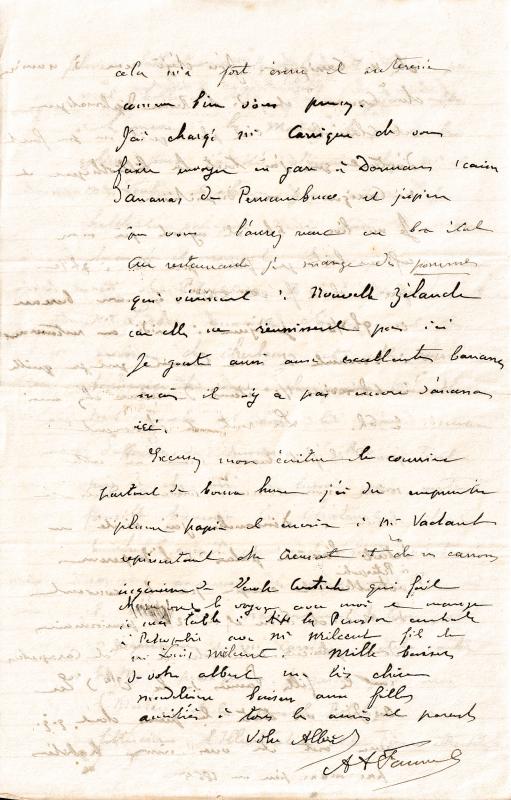 cela m'a fort ému et intéressé
comme bien vous pensez.
J'ai chargé Mr Carrigue de vous
faire envoyer en gare à Dormans 1 caisse
d'ananas de Pernambuco et j'espère
que vous l'aurez reçue en bon état
Au restaurant je mange des pommes
qui viennent de Nouvelle Zélande
car elles ne réunissent pas ici
Je goute aussi aux excellentes bananes
mais il n'y a pas encore d'ananas
ici.
Excusez mon écriture le courrier
partant de bonne heure j'ai du emprunter
plume papier et encrier à Mr
représentant du Creusot et de
ingénieur de l'école Centrale qui fait
le voyage avec moi et mange
à ma table à la Pension centrale
à Petropolis avec Mr Milcent fils de
Mr Louis Milcent. Mille baisers
de votre albert ma très chère
madeleine baisers aux filles
amitiés à tous les amis et parents
Votre Albert